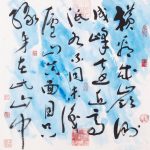 橫看成嶺側
成峰遠近高
低各不同不識
廬山真面目只
緣身在此山中